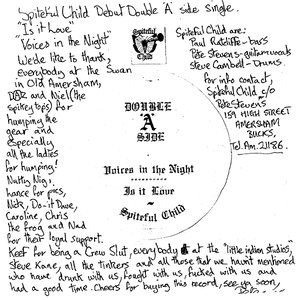 Spiteful Child Debut Double 'A' side Single.
"Is it Love"
"Voices in the Night"
We'd like to thank,
everybody at the Swan
in Old Amersham,
Daz and Niel (the
spikey tops) for
humping the
gear and
especially
all the ladies
for humping!
Natty Nig,
hance for pics,
Nick, Do-it Dave,
Caroline, Chris
the frog and Nad
for their legal support.
Keef for being a Crew Slut, everybody at the "little indian studios,"
Steve Kane, all the tinkers and all those that we havnt mentioned
who have drunk with us, fought with us, fucked with us and
had a good time. Cheers for buying this record, see ya soon,
Spiteful
'A'
Child
Spiteful Child are:
Paul Ratcliffe - bass
Pete Stevens - guitar + vocals
Steve Campbell - Drums.
For info contact,
Spiteful Child c/o
Pete Stevens
159 HIGH STREET
AMERSHAM
BUCKS,
Tel. Am. 21186.
DOUBLE
'A'
SIDE
Voices in the Night
Is it Love
~
Spiteful Child